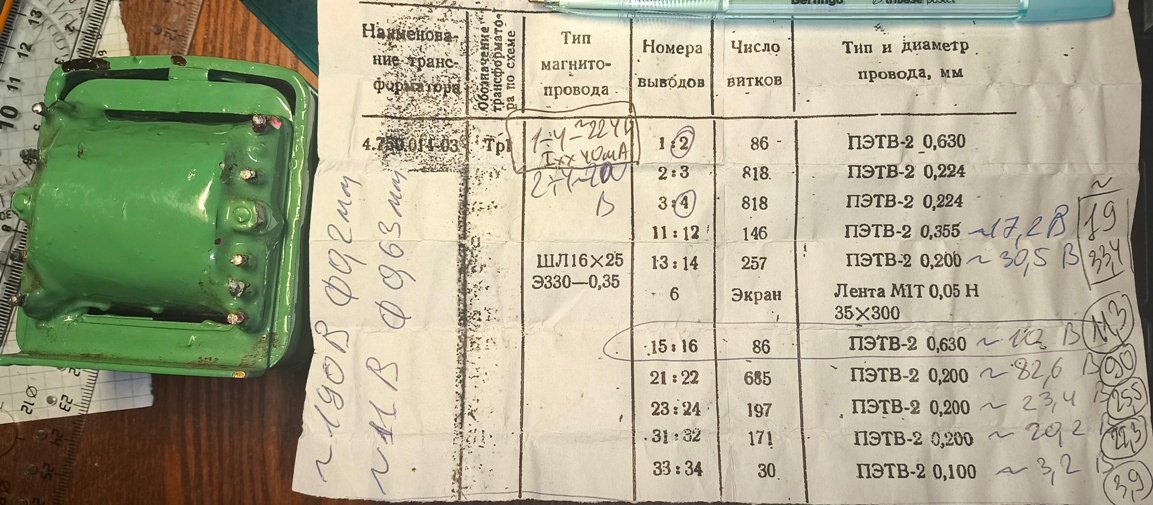 Berlingo tribase paster
Наименова-
ние транс-
форматора
Обозначение
трансформато-
ра по схеме
Тип
магнито-
провода
Номера
выводов
Число
витков
Тип и диаметр
провода, мм
4.730.014-03 Тр1 1÷4 ~ 224В 1:2 86 ПЭТВ-2 0,630
Ixx 40mA
2:3 818 ПЭТВ-2 0,224
В 3:4 818 ПЭТВ-2 0,224
11:12 146 ПЭТВ-2 0,355 ~17,2 В 19
ШЛ16×25 13:14 257 ПЭТВ-2 0,200 ~ 30,5 В 33,4
Э330—0,35 6 Экран Лента М1Т 0,05 Н
35×300
15:16 86 ПЭТВ-2 0,630 ~ В 11,3
21:22 685 ПЭТВ-2 0,200 ~ 82,6 В 90
23:24 197 ПЭТВ-2 0,200 ~ 23,4 В 25,5
31:32 171 ПЭТВ-2 0,200 ~ 20,2 В 22,3
33:34 30 ПЭТВ-2 0,100 ~ 3,2 В 3,9
~190В Ф0,2мм
~11В Ф0,63мм
10 11 12 13